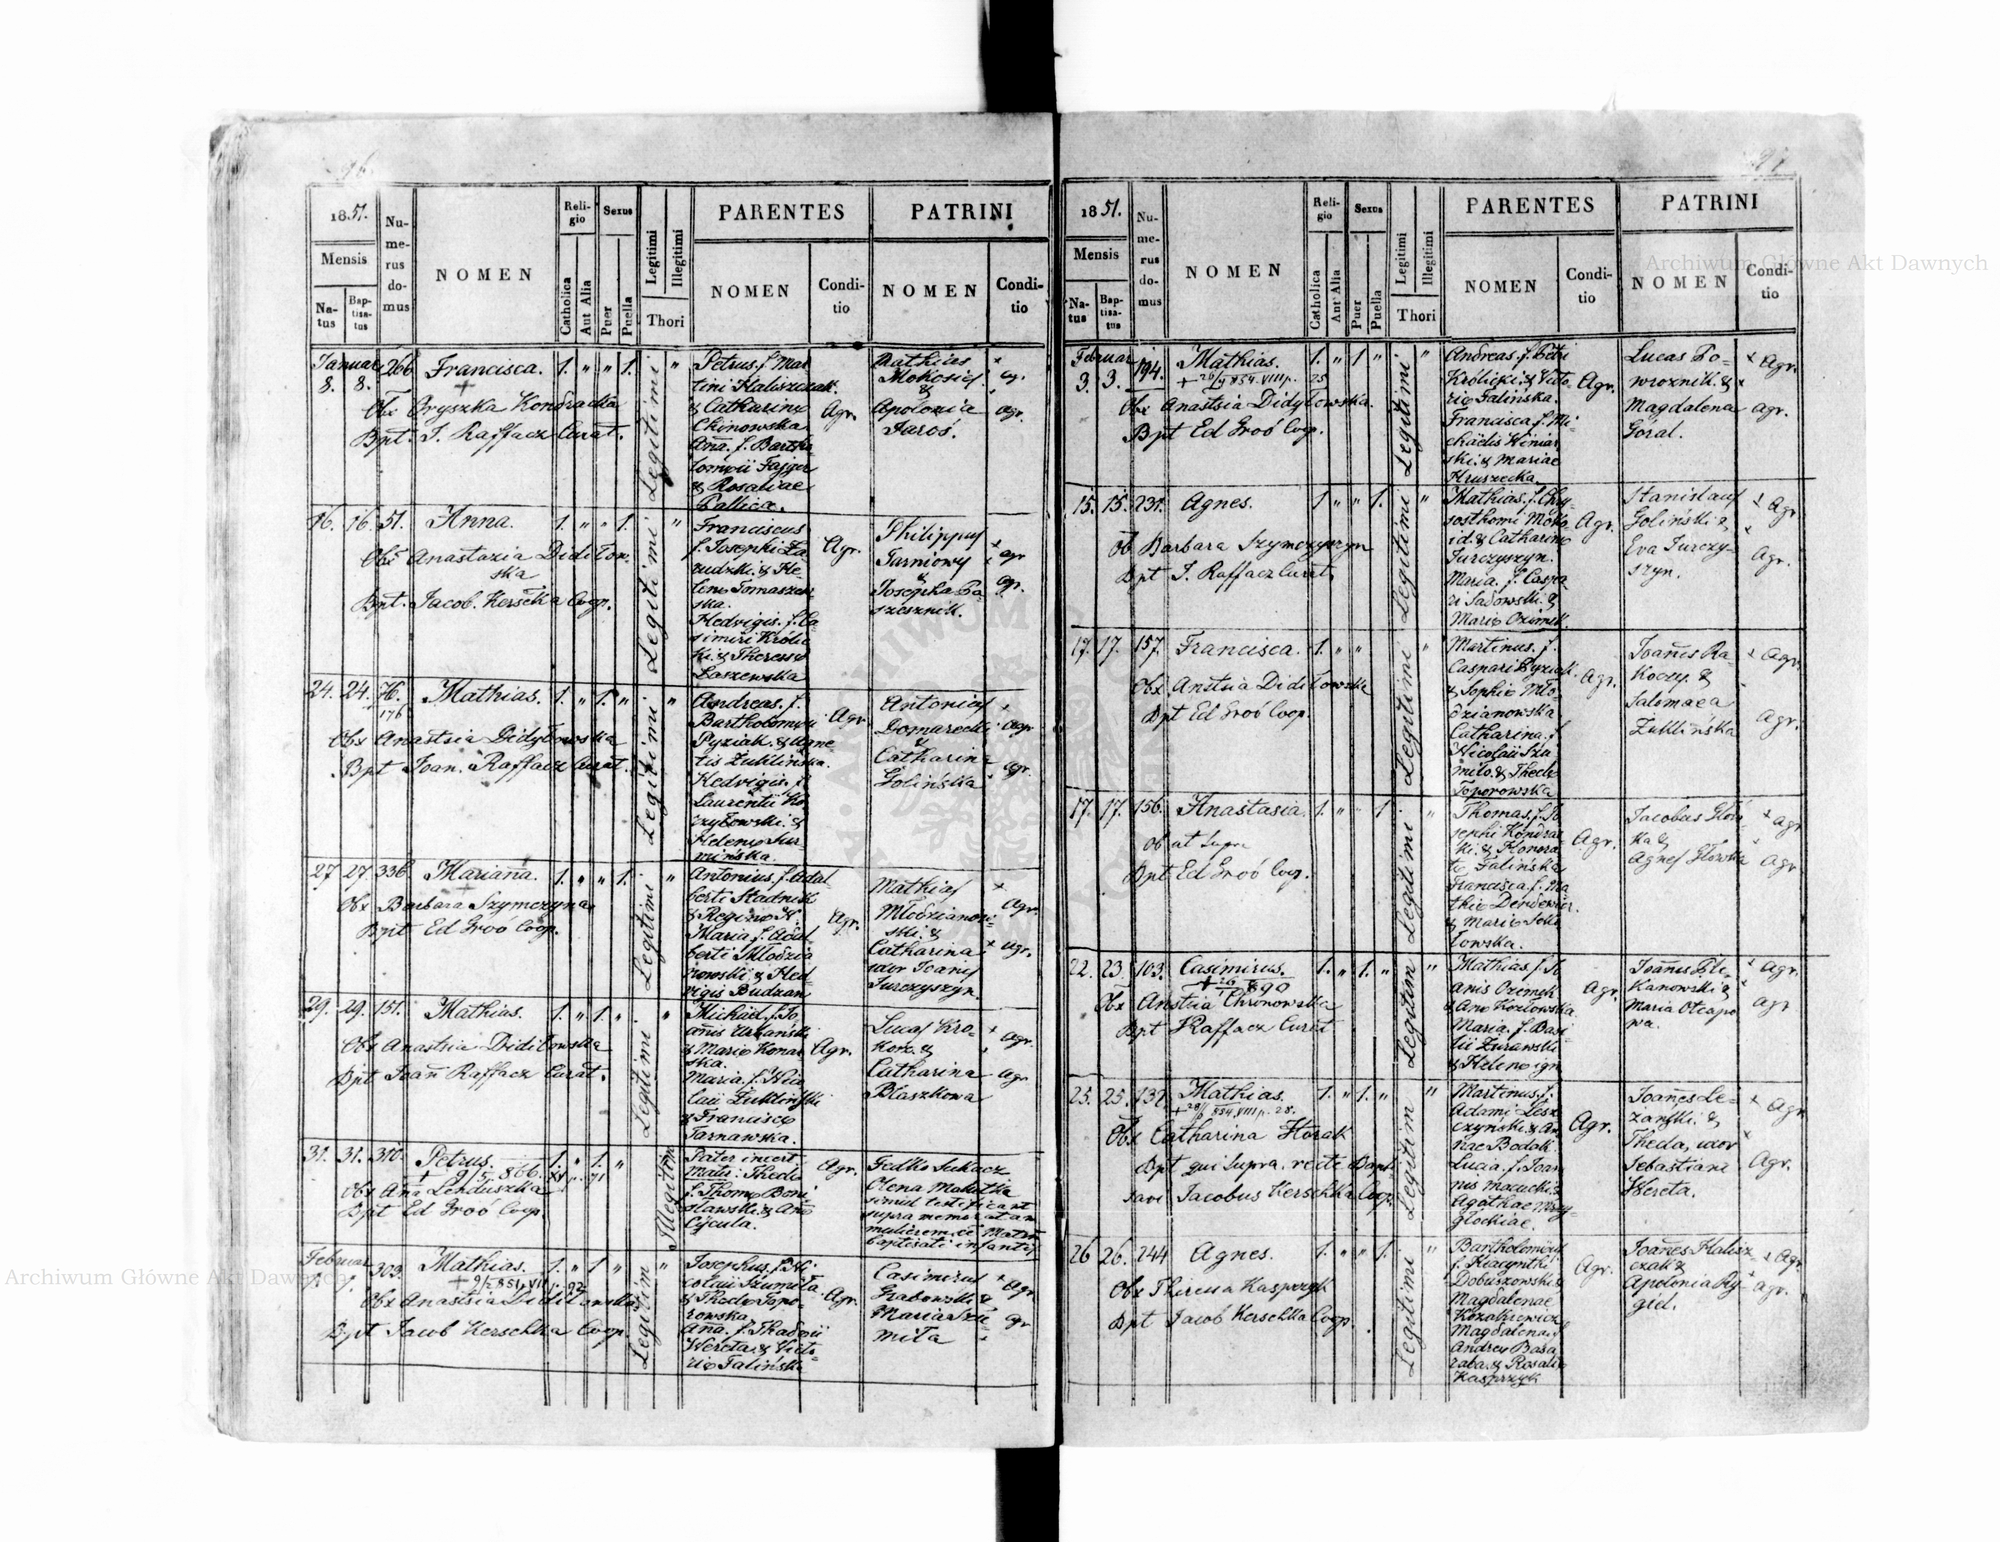 96.
1851.
Mensis
Natus
Baptisatus
Numerus domus
NOMEN
Religio
Catholica
Aut Alia
Sexus
Puer
Puella
Legitimi
Illegitimi
Thori
PARENTES
NOMEN
Conditio
PATRINI
NOMEN
Conditio
Januar
8. 8. 266 Francisca. 1. " " 1. "
+
Obx Oryszka Kondracka
Bpt. J. Raffacz Curat.
Legitimi
Petrus. f. Mar
tini Haliszczak
& Catharina
Chinowska
Aña. f. Bartho
lomeii Fajger
& Rosaliae
Pallica.
Agr.
Mathias
Mokosiej
&
Apolonia
Jaroś.
agr.
16. 16. 51. Anna. 1. " " 1. "
Obx Anastazia Didiłow
ska
Bpt. Jacob. Kerschka Coop.
Legitimi
Franciscus
f. Josephi Za
rudzki. & He
lena Tomaszew
ska.
Hedvigis. f. Ca
simiri Królic
ki. & Theressa
Łaszewska
Agr.
Philippus
Tarniowy
&
Josepha Pa
szesznik.
agr
gr.
24. 24. 76. Mathias. 1. " 1. " "
176
Obx Anastsia Didyłowska
Bpt Joan. Raffacz Curat.
Legitimi
Andreas. f.
Bartholomaei
Pyziak. & Agne
tis Żuklińska.
Hedvigis. f.
Laurentii Ko
rzyłowski. &
Helena Sur
mińska.
Agr.
Antonius
Domarecki
&
Catharina
Golińska
agr.
agr.
27 27 336. Mariaña. 1. " " 1. "
+
Obx Barbara Szymczyna
Bpt Ed Groó Coop.
Legitimi
Antonius. f. Adal
berti Stadnik
& Regina N.
Maria f. Adal
berti Młodzia
nowski & Hed
vigis Budzan
Agr.
Mathias
Młodzianow
ski. &
Catharina
uxor Joanis
Jurczyszyn.
Agr.
agr.
29. 29. 151. Mathias. 1. " 1. " "
Obx Anastsia Didiłowska
Bpt Joañ Raffacz Curat.
Legitimi
Michael. f. Jo
añis Urbański
& Maria Konar
ska.
Maria. f. Nico
laii Żukliński
& Francisca
Tarnawska.
Agr.
Lucas Kro
Korz. &
Catharina
Błaszkowa
agr.
agr
31. 31. 310. Petrus. 1. " 1. "
+ 9/5 866.
Obx Aña Lenduszka
Bpt Ed Groó Coop.
Illegitim
Pater incert.
Mater: Theda
f. Thoma Boni
sławski. & Aña
Cycula.
Agr.
Fedko Lukacz
Olena Makitka
simul testificant
supra memoratam
mulierem ee Matrem
baptisati infantis
Februar
303. Mathias. 1. " 1 " "
Obx Anastsia Didiłowska
Bpt Jacob Kerschka Coop.
Legitim
Josephus. f. Ni
colaii Szumiła
& Theda Topo
rowska
Aña. f. Thadaeii
Wereta & Victo
ria Falińska
Agr.
Casimirus
Grabowski &
Maria Szu
miła
Agr.
gr
97
1851.
Mensis
Natus
Baptisatus
Numerus domus
NOMEN
Religio
Catholica
Aut Alia
Sexus
Puer
Puella
Legitimi
Illegitimi
Thori
PARENTES
NOMEN
Conditio
PATRINI
NOMEN
Conditio
Februar
3. 3. 194. Mathias. 1. " 1 " "
Obx Anastsia Didyłowska.
Bpt Ed Groó Coop.
Legitimi
Andreas. f. Petri
Królicki. & Victo
ria Falińska.
Francisca f. Mi
chaelis Winiar
ski. & Mariae
Hruszecka.
Agr.
Lucas Po
wroznik. &
Magdalena
Góral.
Agr.
agr.
15. 15. 231. Agnes. 1. " " 1. "
Ob Barbara Szymczyszyn
Bpt J. Raffacz Curat.
Legitimi
Mathias. f. Chry
sosthomi Moko
id. & Catharina
Jurczyszyn.
Maria. f. Caspa
ri Sadowski. &
Maria Ozimek.
Agr.
Stanislaus
Goliński &
Eva Jurczy
szyn.
Agr
Agr.
17. 17. 157. Francisca. 1. " " "
Obx Anstsia Didiłowska
Bpt Ed Groó Coop.
Legitimi
Martinus. f.
Caspari Pyziak
& Sophia Mło
dzianowska
Catharina. f.
Nicolaii Szu
miło. & Theda
Toporowska
Agr.
Joañes Ra
Koczy. &
Salomaea
Żuklińska
Agr.
Agr.
17. 17. 156. Anastasia. 1. " " 1 "
Ob ut supra
Bpt Ed Groó Coop.
Legitimi
Thomas. f. Jo
sephi Kondrac
ki. & Honora
ta Falińska
Francisca. f. Ma
thia Dendewicz.
& Maria Soko
łowska.
Agr.
Jacobus Głów
ka &
Agnes Głowska
agr
Agr
22. 23. 103. Casimirus. 1. " 1. " "
+ 26/ 890
Obx Anstsia Chronowska
Bpt J Raffacz Curat
Legitim
Mathias. f. Jo
anis Ozemek
& Ana Kozłowska
Maria. f. Basi
lii Żurawski
& Helena ign
Agr.
Joañes Ble
Kanowski &
Maria Otcapo
wa.
Agr.
agr
25. 25. 137. Mathias. 1. " 1. " "
Obx Catharina Horak
Bpt qui supra. recte Bapti
savi Jacobus Kerschka Coop.
Legitim
Martinus. f.
Adami Lesz
czynski. & An
nae Bodak.
Lucia. f. Joan
nis Macuch &
Agathae Mry
głockiae.
Agr.
Joañes Le
żański. &
Theda, uxor
Sebastiani
Wereta.
Agr.
Agr.
26 26. 244 Agnes. 1. " " 1. "
Obx Theressa Kasprzyk
Bpt Jacob Kerschka Coop.
Legitimi
Bartholomaeus
f. Hiacynthi
Dobuszowski &
Magdalenae
Kozakiewicz
Magdalena. f
Andrea Basa
raba. & Rosalia
Kasprzyk
Agr.
Joañes Halisz
czak &
Apolonia Ry
giel.
Agr.
agr.
Archiwum Główne Akt Dawnych
Archiwum Główne Akt Dawnych